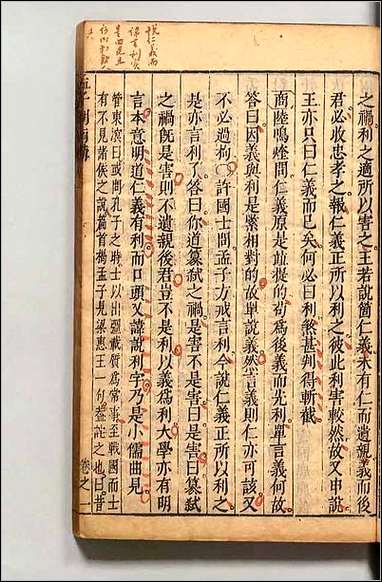 之禍利之適所以害之王若說箇仁義未有仁而遺親義而後
君必收忠孝之報仁義正所以利之彼此利害較然故又申說
王亦只曰仁義而已矣何必曰利煞甚判得斬截
商陸鳴煃問仁義原是並提的苟為後義而先利單言義何故
答曰因義與利是緊相對的故單說義然言義則仁亦可該又
不必過拘〇許國士問孟子方戒言利今說仁義正所以利之
是亦言利了答曰你道篡弒之禍是害不是害曰是害曰篡弒
之禍既是害則不遺親後君豈不是利以義為利大學亦有明
言本意明道仁義有利而口頭又諱說利字乃是小儒曲見
管東溟曰或問孔子之時士以出疆載質為常事至戰國而士
有不見諸侯之說篇首揭孟子見梁惠王一句蓋詫之也曰昔
卷之一
說仁義而